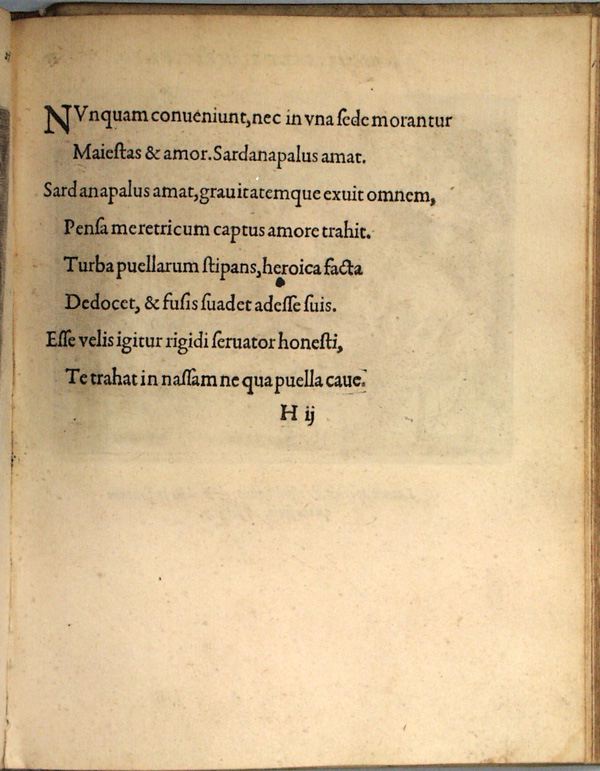 NVnquam conueniunt, nec in vna ſede morantur
Maieſtas & amor. Sardanapalus amat.
Sardanapalus amat, grauitatemque exuit omnem,
Penſa meretricum captus amore trahit.
Turba puellarum ſtipans, heroica facta
Dedocet, & fuſis ſuadet adeſſe ſuis.
Eſſe velis igitur rigidi ſeruator honeſti,
Te trahat in naſſam ne qua puella caue.
H ij